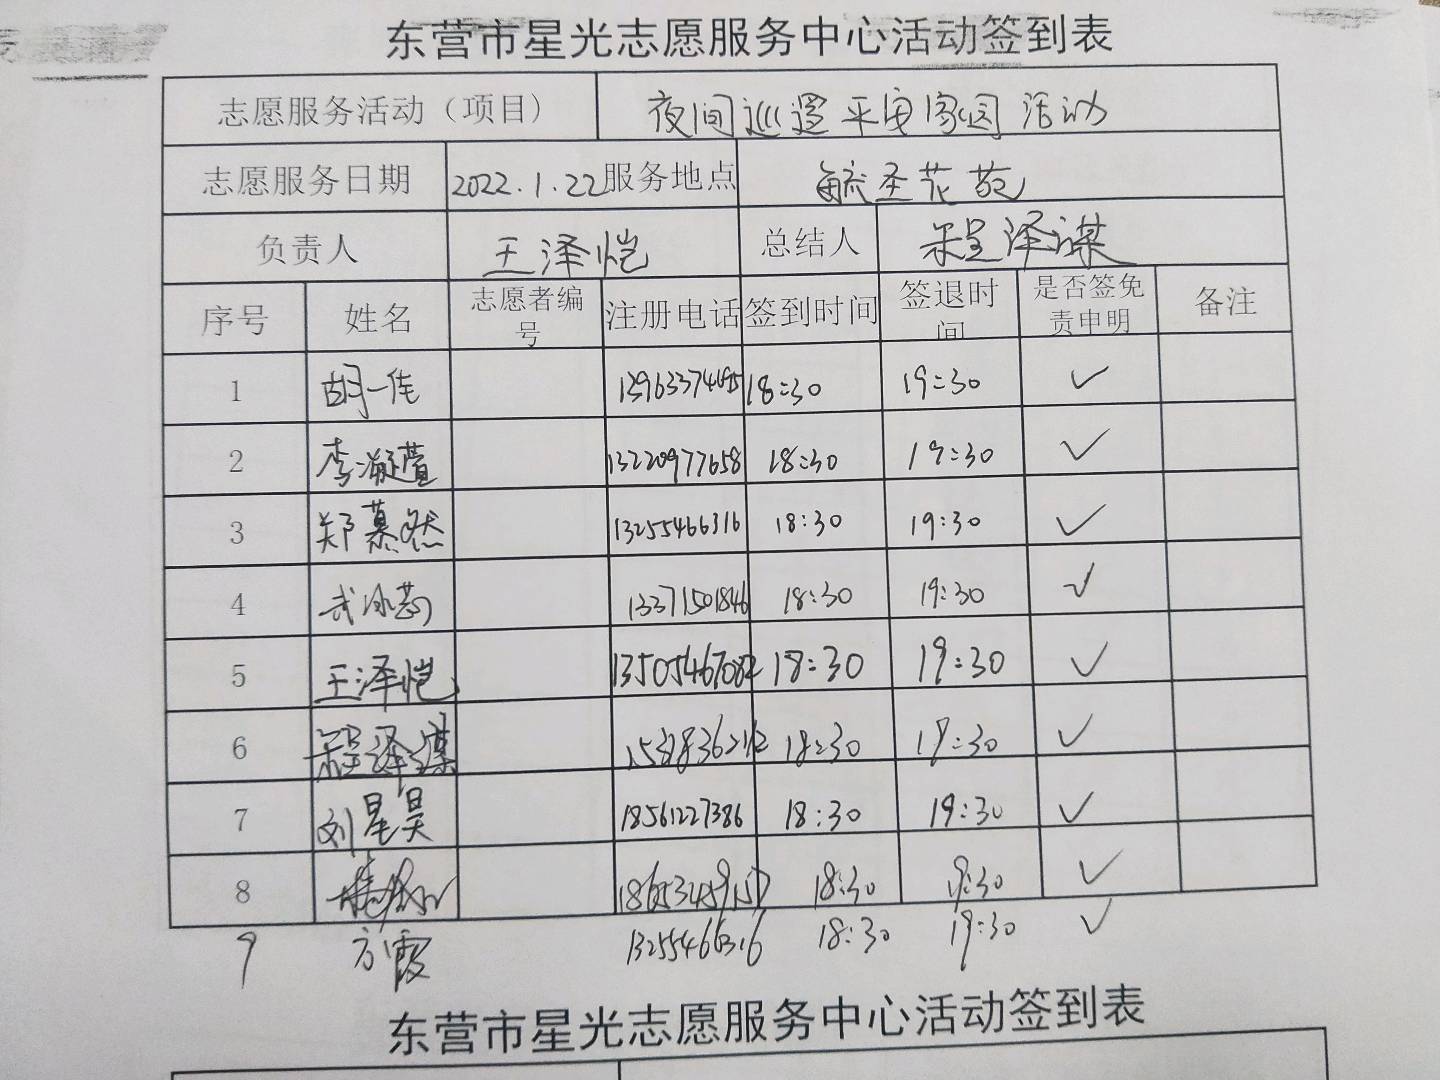 东营市星光志愿服务中心活动签到表
志愿服务活动（项目） 夜间巡逻平安家园活动
志愿服务日期 2022.1.22 服务地点 毓圣花苑
负责人 王泽恺 总结人 程泽谋
序号 姓名 志愿者编号 注册电话 签到时间 签退时间 是否签免责申明 备注
1 胡一佳 18:30 19:30 ✓
2 李凝萱 13220977658 18:30 19:30 ✓
3 郑慕然 13255466316 18:30 19:30 ✓
4 武冰茹 13371501846 18:30 19:30 ✓
5 王泽恺 13505467082 18:30 19:30 ✓
6 程泽谋 18:30 19:30 ✓
7 刘星昊 18561227386 18:30 19:30 ✓
8 18:30 19:30 ✓
9 方霞 13255466316 18:30 19:30 ✓
东营市星光志愿服务中心活动签到表